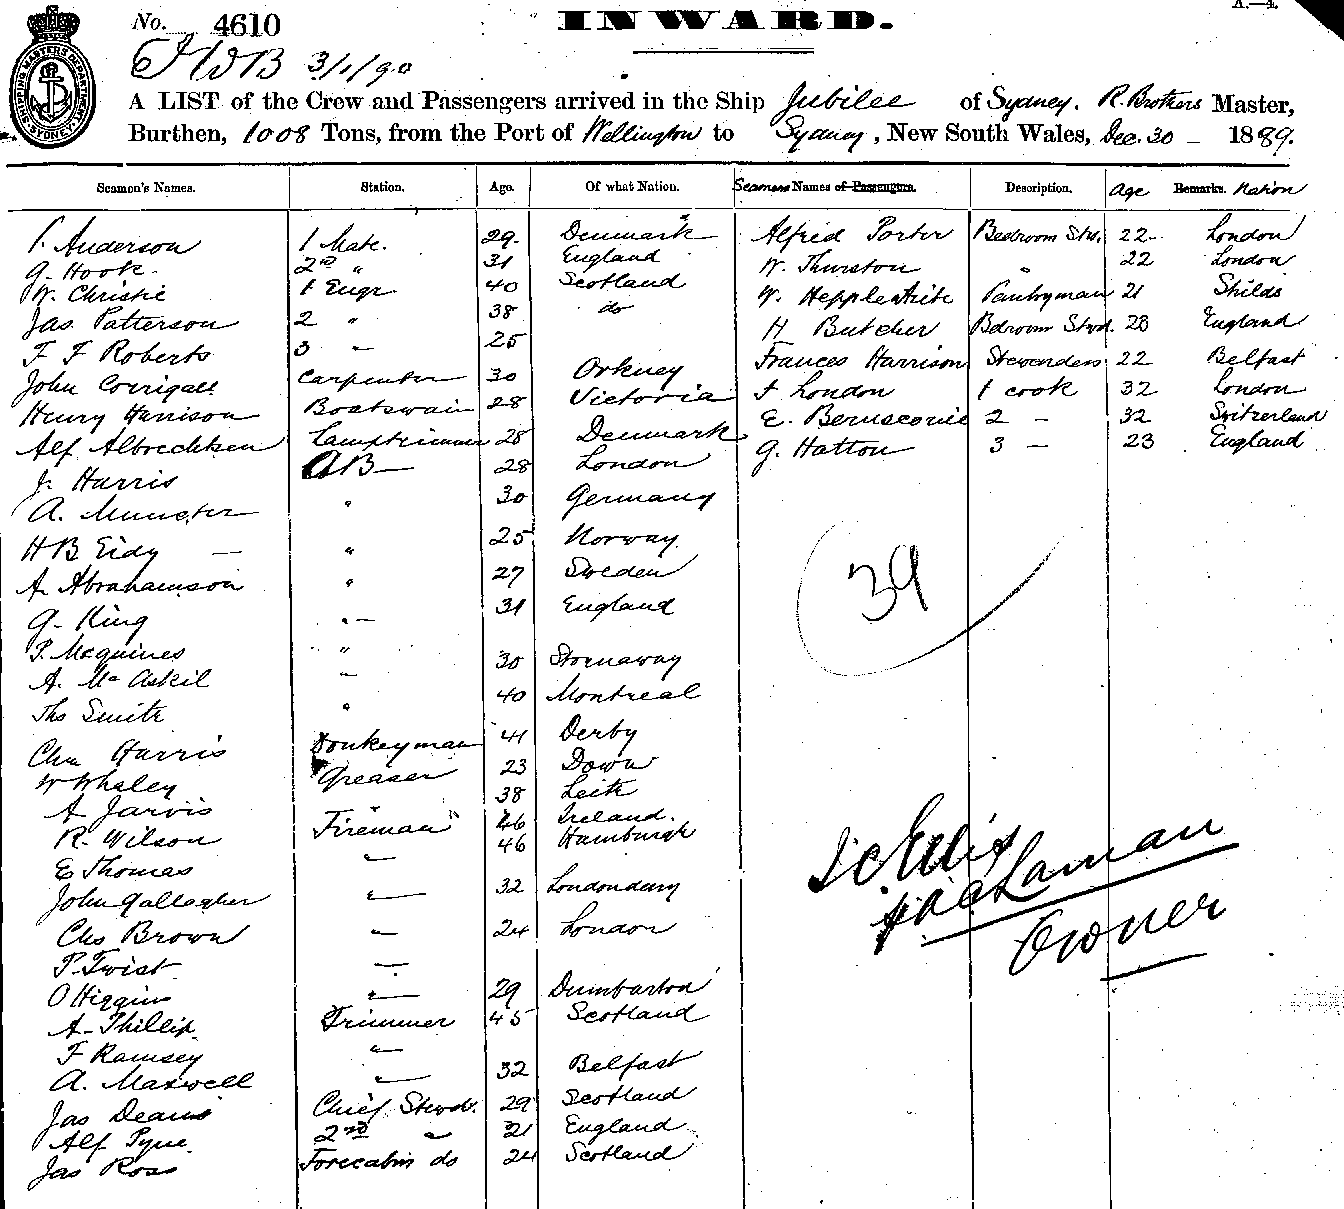 A.—4.
No. 4610
INWARD.
3/1/90
SHIPPING MASTERS DEPARTMENT SYDNEY
A LIST of the Crew and Passengers arrived in the Ship Jubilee of Sydney. R. Brothers Master,
Burthen, 1008 Tons, from the Port of Wellington to Sydney, New South Wales, Dec. 30 — 1889.
Seamen's Names. Station. Age. Of what Nation. Seamens Names of Passengers. Description. Age Remarks. Nation
Anderson 1 Mate. 29. Denmark Alfred Porter Bedroom Std. 22 London
G. Hook. 2nd " 31 England W. Thurston " 22 London
W. Christie 1 Engr 40 Scotland W. Hepplewhite Pantryman 21 Shilds
Jas. Patterson 2 " 38 do H Butcher Bedroom Stwd. 23 England
F F Roberts 3 " 25 Frances Harrison Stewardess 22 Belfast
John Corrigall Carpenter 30 Orkney London 1 cook 32 London
Henry Harrison Boatswain 28 Victoria E. 2 — 32 Switzerland
Alf Albrechtsen Lamptrimmer 28 Denmark G. Hatton 3 — 23 England
J. Harris AB — 28 London
A. Munster " 30 Germany
H B Eidy — " 25 Norway
A. Abrahamson " 27 Sweden
G. King " — 31 England
P. McGuines " 30 Stornaway
A. McAskil " 40 Montreal
Ths Smith " 41 Derby
Chas Harris Donkeyman 23 Down
W Whaley Greaser 38 Leith
A Jarvis " 46 Ireland.
R. Wilson Fireman 46 Hamburgh
E Thomas "
John Gallagher " 32 Londonderry
Chs Brown " 24 London
P. Twist "
O Higgins " 29 Dumbarton
A. Phillip Trimmer 45 Scotland
F Ramsey "
A. Maxwell " 32 Belfast
Jas Deans Chief Stewd. 29 Scotland
Alf Pyne 2nd " 21 England
Jas Ross Forecabin do 24 Scotland
39
Owner